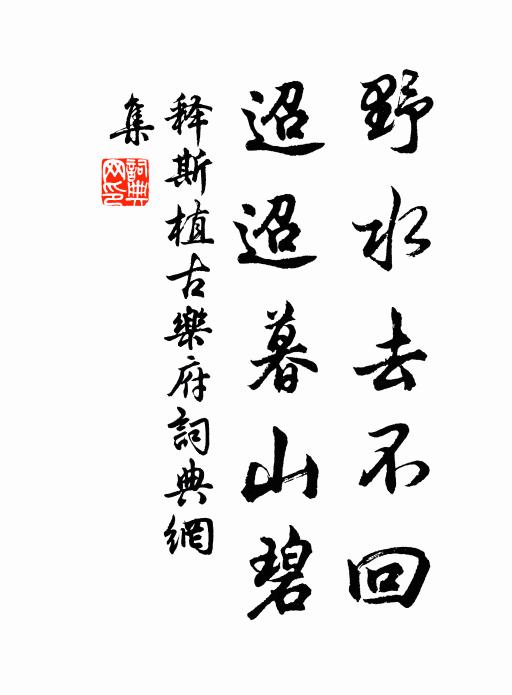 野水去不回
迢迢暮山碧
释斯植古樂府詞典網
集
詞典
网印